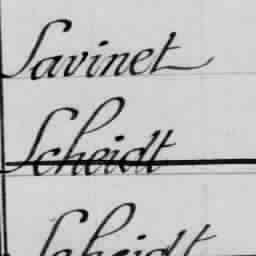 Savinet
Scheidt
Scheidt